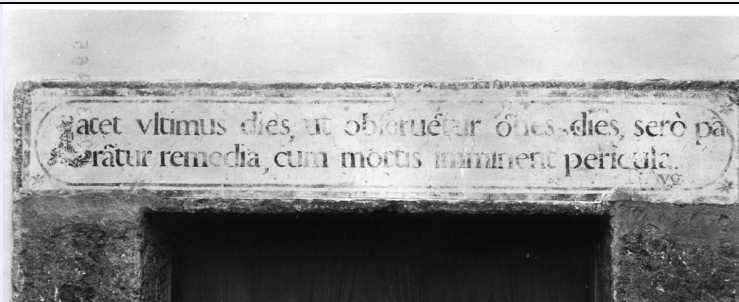 Latet vltimus dies, ut obseruētur ōēs dies, serò pa
rātur remedia, cum mortis imminent pericula.